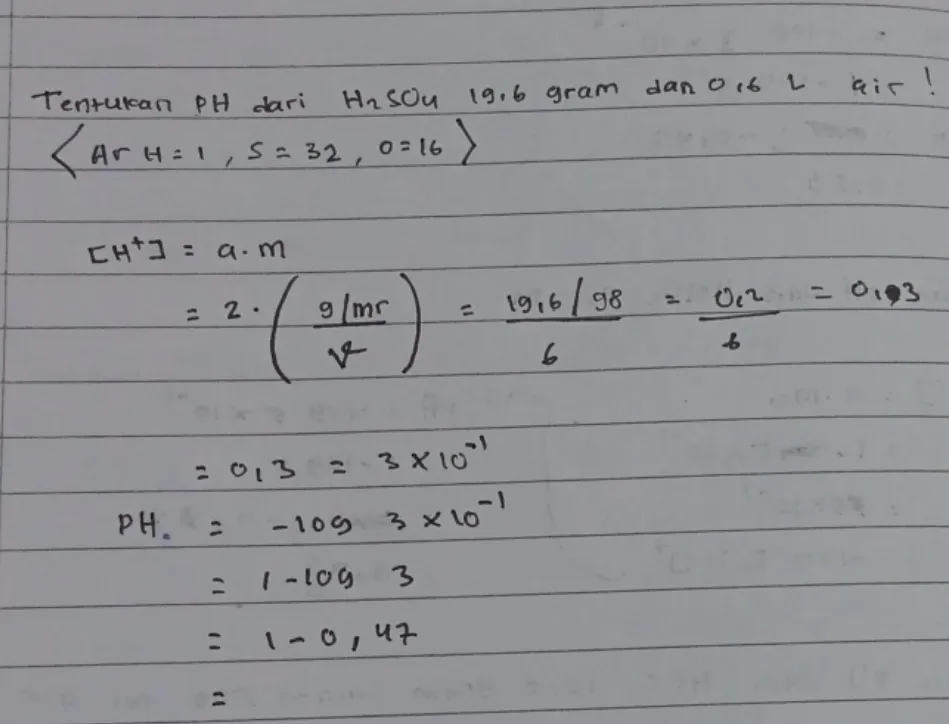 Tentukan PH dari H2SO4 19,6 gram dan 0,6 L air !
< Ar H = 1 , S = 32 , O = 16 >
[H+] = a . m
= 2 . ( g/mr / V ) = 19,6 / 98 / 6 = 0,2 / 6 = 0,03
= 0,3 = 3 × 10^-1
PH. = -log 3 × 10^-1
= 1 - log 3
= 1 - 0,47
=